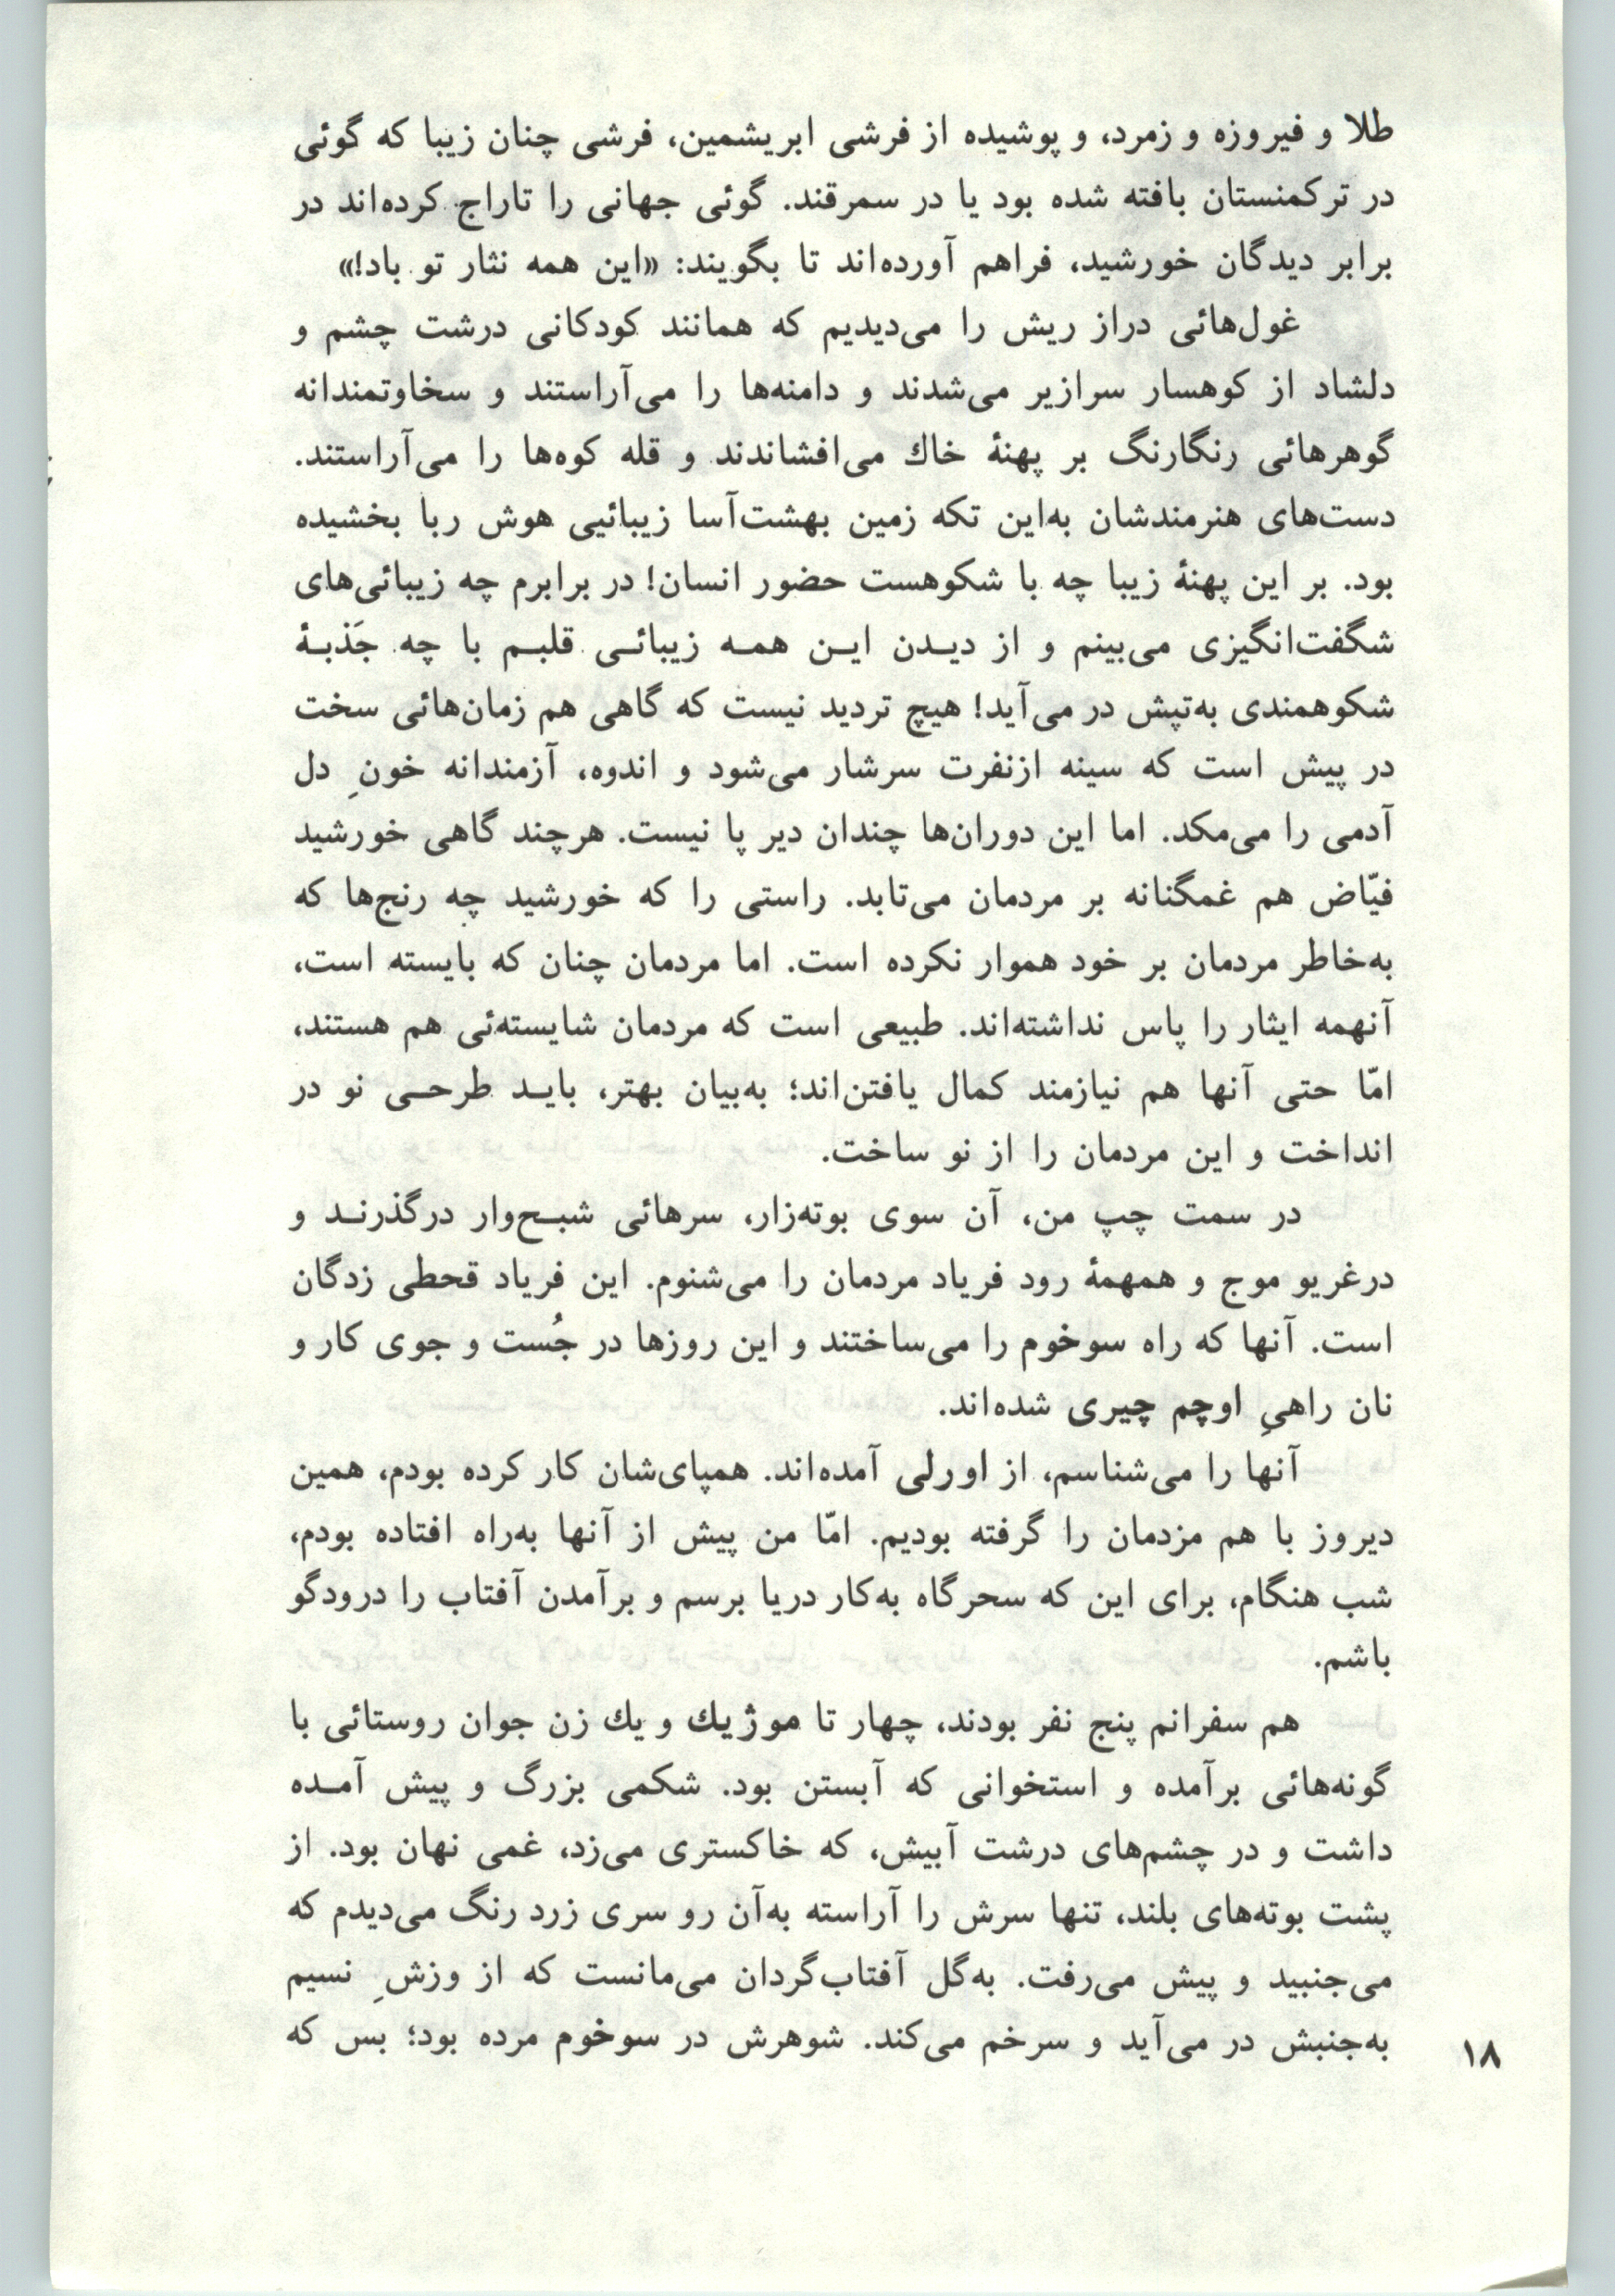 طلا و فیروزه و زمرد، و پوشیده از فرشی ابریشمین، فرشی چنان زیبا که گوئی
در ترکمنستان بافته شده بود یا در سمرقند. گوئی جهانی را تاراج کرده‌اند در
برابر دیدگان خورشید، فراهم آورده‌اند تا بگویند: «این همه نثار تو باد!»
غول‌هائی دراز ریش را می‌دیدیم که همانند کودکانی درشت چشم و
دلشاد از کوهسار سرازیر می‌شدند و دامنه‌ها را می‌آراستند و سخاوتمندانه
گوهرهائی رنگارنگ بر پهنهٔ خاك می‌افشاندند و قله کوه‌ها را می‌آراستند.
دست‌های هنرمندشان به‌این تکه زمین بهشت‌آسا زیبائیی هوش ربا بخشیده
بود. بر این پهنهٔ زیبا چه با شکوهست حضور انسان! در برابرم چه زیبائی‌های
شگفت‌انگیزی می‌بینم و از دیدن این همه زیبائی قلبم با چه جَذبهٔ
شکوهمندی به‌تپش در می‌آید! هیچ تردید نیست که گاهی هم زمان‌هائی سخت
در پیش است که سینه ازنفرت سرشار می‌شود و اندوه، آزمندانه خونِ دل
آدمی را می‌مکد. اما این دوران‌ها چندان دیر پا نیست. هرچند گاهی خورشید
فیّاض هم غمگنانه بر مردمان می‌تابد. راستی را که خورشید چه رنج‌ها که
به‌خاطر مردمان بر خود هموار نکرده است. اما مردمان چنان که بایسته است،
آنهمه ایثار را پاس نداشته‌اند. طبیعی است که مردمان شایسته‌ئی هم هستند،
امّا حتی آنها هم نیازمند کمال یافتن‌اند؛ به‌بیان بهتر، باید طرحی نو در
انداخت و این مردمان را از نو ساخت.
در سمت چپ من، آن سوی بوته‌زار، سرهائی شبح‌وار درگذرند و
درغریو موج و همهمهٔ رود فریاد مردمان را می‌شنوم. این فریاد قحطی زدگان
است. آنها که راه سوخوم را می‌ساختند و این روزها در جُست و جوی کار و
نان راهیِ اوچم چیری شده‌اند.
آنها را می‌شناسم، از اورلی آمده‌اند. همپای‌شان کار کرده بودم، همین
دیروز با هم مزدمان را گرفته بودیم. امّا من پیش از آنها به‌راه افتاده بودم،
شب هنگام، برای این که سحرگاه به‌کار دریا برسم و برآمدن آفتاب را درودگو
باشم.
هم سفرانم پنج نفر بودند، چهار تا موژیك و یك زن جوان روستائی با
گونه‌هائی برآمده و استخوانی که آبستن بود. شکمی بزرگ و پیش آمده
داشت و در چشم‌های درشت آبیش، که خاکستری می‌زد، غمی نهان بود. از
پشت بوته‌های بلند، تنها سرش را آراسته به‌آن رو سری زرد رنگ می‌دیدم که
می‌جنبید و پیش می‌رفت. به‌گل آفتاب‌گردان می‌مانست که از وزشِ نسیم
به‌جنبش در می‌آید و سرخم می‌کند. شوهرش در سوخوم مرده بود؛ بس که
۱۸